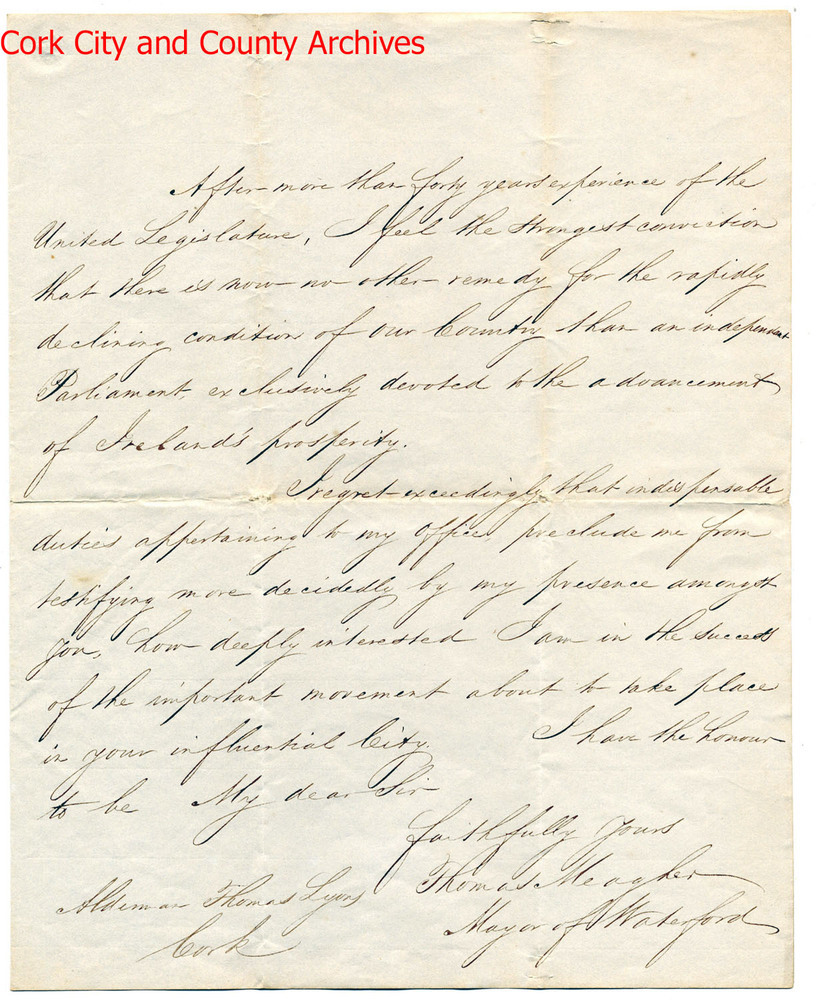 Cork City and County Archives
After more than forty years experience of the
United Legislature, I feel the strongest conviction
that there is now no other remedy for the rapidly
declining condition of our Country than an independent
Parliament exclusively devoted to the advancement
of Ireland's prosperity.
I regret exceedingly that indispensable
duties appertaining to my office preclude me from
testifying more decidedly by my presence amongst
you, how deeply interested I am in the success
of the important movement about to take place
in your influential City. I have the honour
to be My dear Sir
faithfully yours
Thomas Meagher
Mayor of Waterford
Alderman Thomas Lyons
Cork